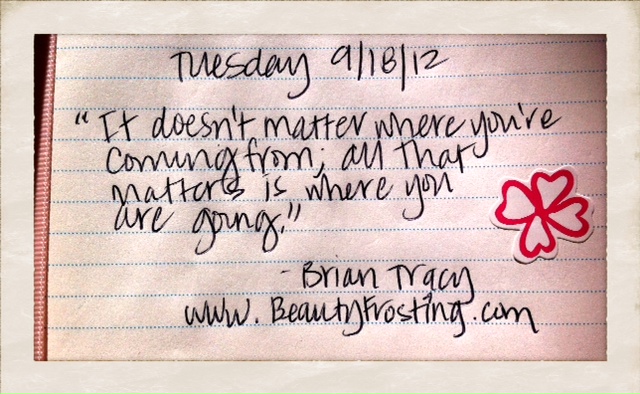 Tuesday 9/18/12
"It doesn't matter where you're
coming from; all that
matters is where you
are going."
- Brian Tracy
www.BeautyFrosting.com